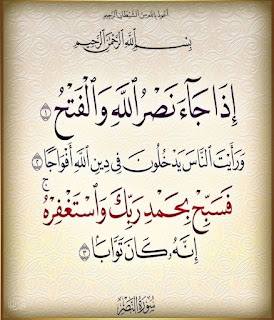 أَعُوذُ بِاللَّهِ مِنَ الشَّيْطَانِ الرَّجِيمِ
بِسْمِ ٱللَّهِ ٱلرَّحْمَٰنِ ٱلرَّحِيمِ
إِذَا جَآءَ نَصْرُ ٱللَّهِ وَٱلْفَتْحُ ١
وَرَأَيْتَ ٱلنَّاسَ يَدْخُلُونَ فِى دِينِ ٱللَّهِ أَفْوَاجًا ٢
فَسَبِّحْ بِحَمْدِ رَبِّكَ وَٱسْتَغْفِرْهُ ۚ
إِنَّهُۥ كَانَ تَوَّابًۢا ٣
سُورَةُ ٱلنَّصْرِ